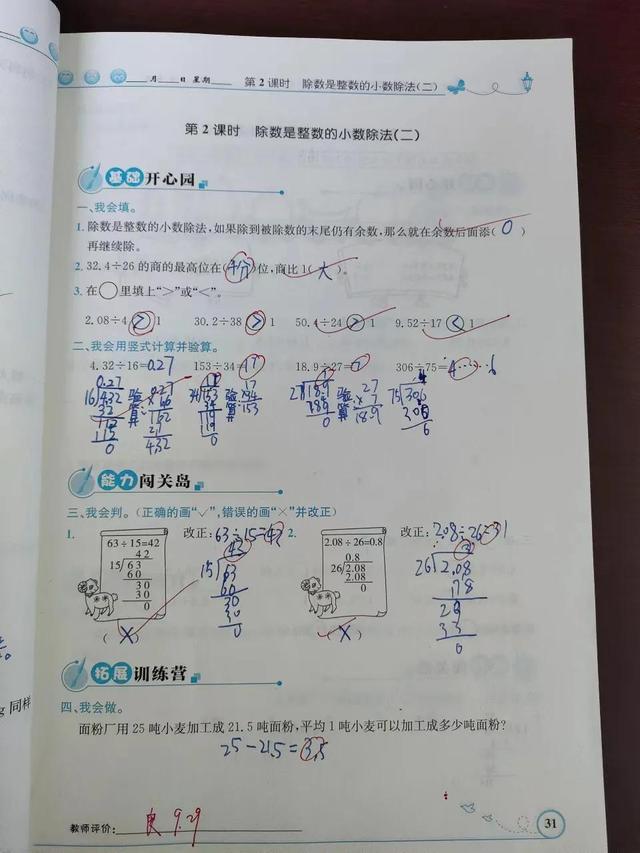 月 日 星期 第2课时 除数是整数的小数除法(二)
第2课时 除数是整数的小数除法(二)
基础开心园
一、我会填。
1. 除数是整数的小数除法,如果除到被除数的末尾仍有余数,那么就在余数后面添( 0 )
再继续除。
2. 32.4÷26的商的最高位在(十分)位,商比1(大)。
3. 在○里填上“>”或“<”。
2.08÷4>1 30.2÷38>1 50.4÷24>1 9.52÷17<1
二、我会用竖式计算并验算。
4.32÷16=0.27 153÷34=17 18.9÷27=7 306÷75=4……6
能力闯关岛
三、我会判。(正确的画“√”,错误的画“×”并改正)
1. 改正:63÷15=42 2. 改正:2.08÷26=31
63÷15=42 2.08÷26=0.8
42 0.8
15 63 26 2.08
60 2.08
30 0
30
0
(×) (×)
拓展训练营
四、我会做。
面粉厂用25吨小麦加工成21.5吨面粉,平均1吨小麦可以加工成多少吨面粉?
25-21.5=3.5
教师评价: 良 9.29
31
g 同样